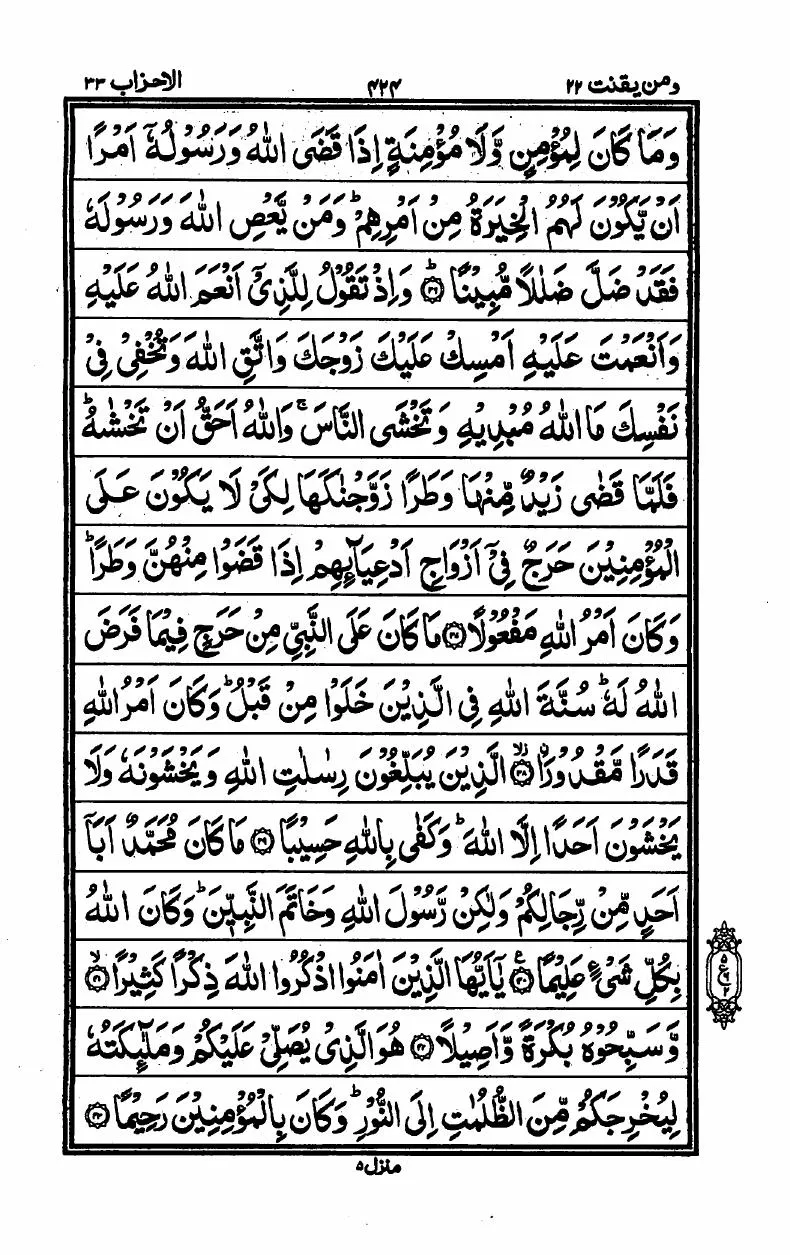 ومن یقنت ۲۲
۴۲۴
الاحزاب ۳۳
وَمَا كَانَ لِمُؤْمِنٍ وَّلَا مُؤْمِنَةٍ اِذَا قَضَى اللّٰهُ وَرَسُوْلُهٗٓ اَمْرًا
اَنْ يَّكُوْنَ لَهُمُ الْخِيَرَةُ مِنْ اَمْرِهِمْ ؕ وَمَنْ يَّعْصِ اللّٰهَ وَرَسُوْلَهٗ
فَقَدْ ضَلَّ ضَلٰلًا مُّبِيْنًا ؕ ﴿۳۶﴾ وَاِذْ تَقُوْلُ لِلَّذِيْٓ اَنْعَمَ اللّٰهُ عَلَيْهِ
وَاَنْعَمْتَ عَلَيْهِ اَمْسِكْ عَلَيْكَ زَوْجَكَ وَاتَّقِ اللّٰهَ وَتُخْفِيْ فِيْ
نَفْسِكَ مَا اللّٰهُ مُبْدِيْهِ وَتَخْشَى النَّاسَ ۚ وَاللّٰهُ اَحَقُّ اَنْ تَخْشٰىهُ ؕ
فَلَمَّا قَضٰى زَيْدٌ مِّنْهَا وَطَرًا زَوَّجْنٰكَهَا لِكَيْ لَا يَكُوْنَ عَلَى
الْمُؤْمِنِيْنَ حَرَجٌ فِيْٓ اَزْوَاجِ اَدْعِيَآئِهِمْ اِذَا قَضَوْا مِنْهُنَّ وَطَرًا ؕ
وَكَانَ اَمْرُ اللّٰهِ مَفْعُوْلًا ﴿۳۷﴾ مَا كَانَ عَلَى النَّبِيِّ مِنْ حَرَجٍ فِيْمَا فَرَضَ
اللّٰهُ لَهٗ ؕ سُنَّةَ اللّٰهِ فِي الَّذِيْنَ خَلَوْا مِنْ قَبْلُ ؕ وَكَانَ اَمْرُ اللّٰهِ
قَدَرًا مَّقْدُوْرًا ۙ ﴿۳۸﴾ الَّذِيْنَ يُبَلِّغُوْنَ رِسٰلٰتِ اللّٰهِ وَيَخْشَوْنَهٗ وَلَا
يَخْشَوْنَ اَحَدًا اِلَّا اللّٰهَ ؕ وَكَفٰى بِاللّٰهِ حَسِيْبًا ﴿۳۹﴾ مَا كَانَ مُحَمَّدٌ اَبَآ
اَحَدٍ مِّنْ رِّجَالِكُمْ وَلٰكِنْ رَّسُوْلَ اللّٰهِ وَخَاتَمَ النَّبِيّٖنَ ؕ وَكَانَ اللّٰهُ
بِكُلِّ شَيْءٍ عَلِيْمًا ﴿۴۰﴾ ع يٰٓاَيُّهَا الَّذِيْنَ اٰمَنُوا اذْكُرُوا اللّٰهَ ذِكْرًا كَثِيْرًا ۙ ﴿۴۱﴾
وَّسَبِّحُوْهُ بُكْرَةً وَّاَصِيْلًا ﴿۴۲﴾ هُوَ الَّذِيْ يُصَلِّيْ عَلَيْكُمْ وَمَلٰٓئِكَتُهٗ
لِيُخْرِجَكُمْ مِّنَ الظُّلُمٰتِ اِلَى النُّوْرِ ؕ وَكَانَ بِالْمُؤْمِنِيْنَ رَحِيْمًا ﴿۴۳﴾
۵
ع ۶
۲
منزل ۵